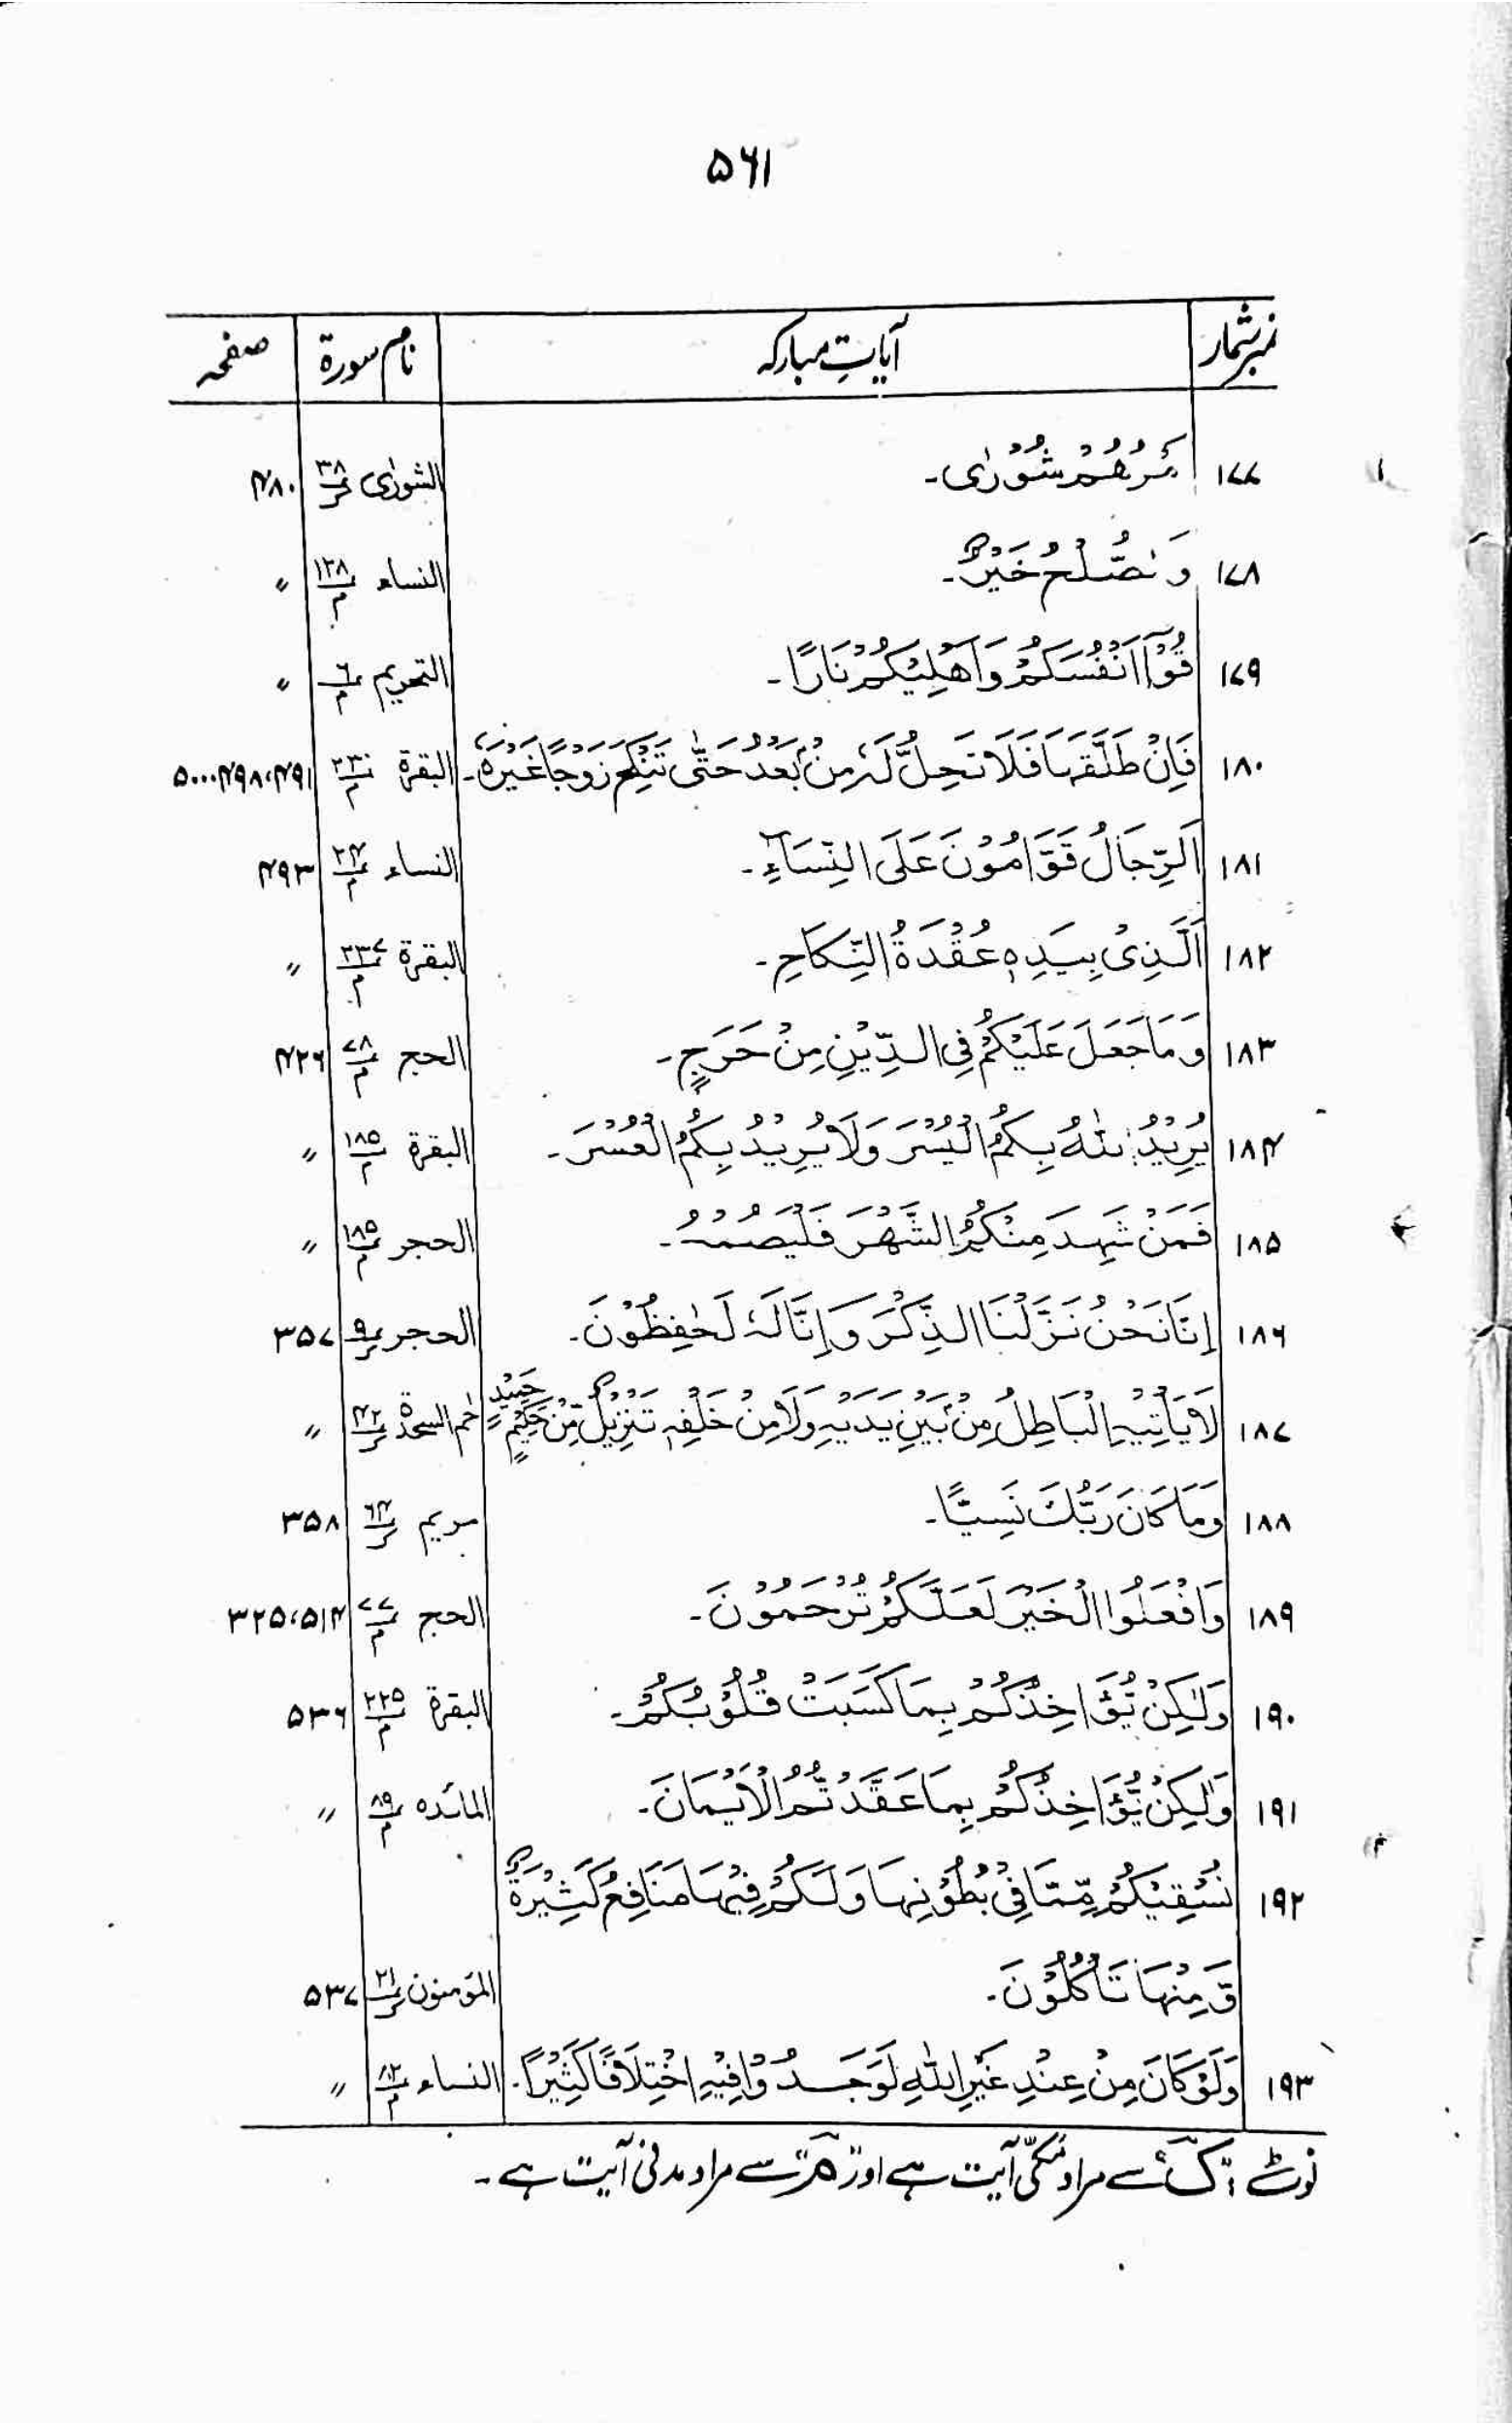 ۵۶۱
نمبر شمار | آیاتِ مبارکہ | نام سورۃ | صفحہ
۱۷۷ | اَمْرُهُمْ شُوْرٰى۔ | الشورٰی ۳۸/ک | ۴۸۰
۱۷۸ | وَالصُّلْحُ خَيْرٌ۔ | النساء ۱۲۸/م | 〃
۱۷۹ | قُوْٓا اَنْفُسَكُمْ وَاَهْلِيْكُمْ نَارًا۔ | التحریم ۶/م | 〃
۱۸۰ | فَاِنْ طَلَّقَهَا فَلَا تَحِلُّ لَهٗ مِنْۢ بَعْدُ حَتّٰى تَنْكِحَ زَوْجًا غَيْرَهٗ۔ | البقرۃ ۲۳۰/م | ۴۹۱،۴۹۸،۵۰۰
۱۸۱ | اَلرِّجَالُ قَوَّامُوْنَ عَلَى النِّسَآءِ۔ | النساء ۳۴/م | ۴۹۳
۱۸۲ | اَلَّذِیْ بِيَدِهٖ عُقْدَةُ النِّكَاحِ۔ | البقرۃ ۲۳۷/م | 〃
۱۸۳ | وَمَا جَعَلَ عَلَيْكُمْ فِى الدِّيْنِ مِنْ حَرَجٍ۔ | الحج ۷۸/م | ۴۲۶
۱۸۴ | يُرِيْدُ اللّٰهُ بِكُمُ الْيُسْرَ وَلَا يُرِيْدُ بِكُمُ الْعُسْرَ۔ | البقرۃ ۱۸۵/م | 〃
۱۸۵ | فَمَنْ شَهِدَ مِنْكُمُ الشَّهْرَ فَلْيَصُمْهُ۔ | الحجر ۱۸۵/م | 〃
۱۸۶ | اِنَّا نَحْنُ نَزَّلْنَا الذِّكْرَ وَاِنَّا لَهٗ لَحٰفِظُوْنَ۔ | الحجر ۹/ک | ۳۵۷
۱۸۷ | لَا يَاْتِيْهِ الْبَاطِلُ مِنْۢ بَيْنِ يَدَيْهِ وَلَا مِنْ خَلْفِهٖ تَنْزِيْلٌ مِّنْ حَكِيْمٍ حَمِيْدٍ | حٰم السجدۃ ۴۲/ک | 〃
۱۸۸ | وَمَا كَانَ رَبُّكَ نَسِيًّا۔ | مریم ۶۴/ک | ۳۵۸
۱۸۹ | وَافْعَلُوا الْخَيْرَ لَعَلَّكُمْ تُرْحَمُوْنَ۔ | الحج ۷۷/م | ۳۲۵،۵۱۴
۱۹۰ | وَلٰكِنْ يُّؤَاخِذُكُمْ بِمَا كَسَبَتْ قُلُوْبُكُمْ۔ | البقرۃ ۲۲۵/م | ۵۳۶
۱۹۱ | وَلٰكِنْ يُّؤَاخِذُكُمْ بِمَا عَقَّدْتُّمُ الْاَيْمَانَ۔ | المائدہ ۸۹/م | 〃
۱۹۲ | نُسْقِيْكُمْ مِّمَّا فِىْ بُطُوْنِهَا وَلَكُمْ فِيْهَا مَنَافِعُ كَثِيْرَةٌ
وَّمِنْهَا تَاْكُلُوْنَ۔ | المؤمنون ۲۱/ک | ۵۳۷
۱۹۳ | وَلَوْ كَانَ مِنْ عِنْدِ غَيْرِ اللّٰهِ لَوَجَدُوْا فِيْهِ اخْتِلَافًا كَثِيْرًا۔ | النساء ۸۲/م | 〃
نوٹ: "ک" سے مراد مکّی آیت ہے اور "م" سے مراد مدنی آیت ہے۔